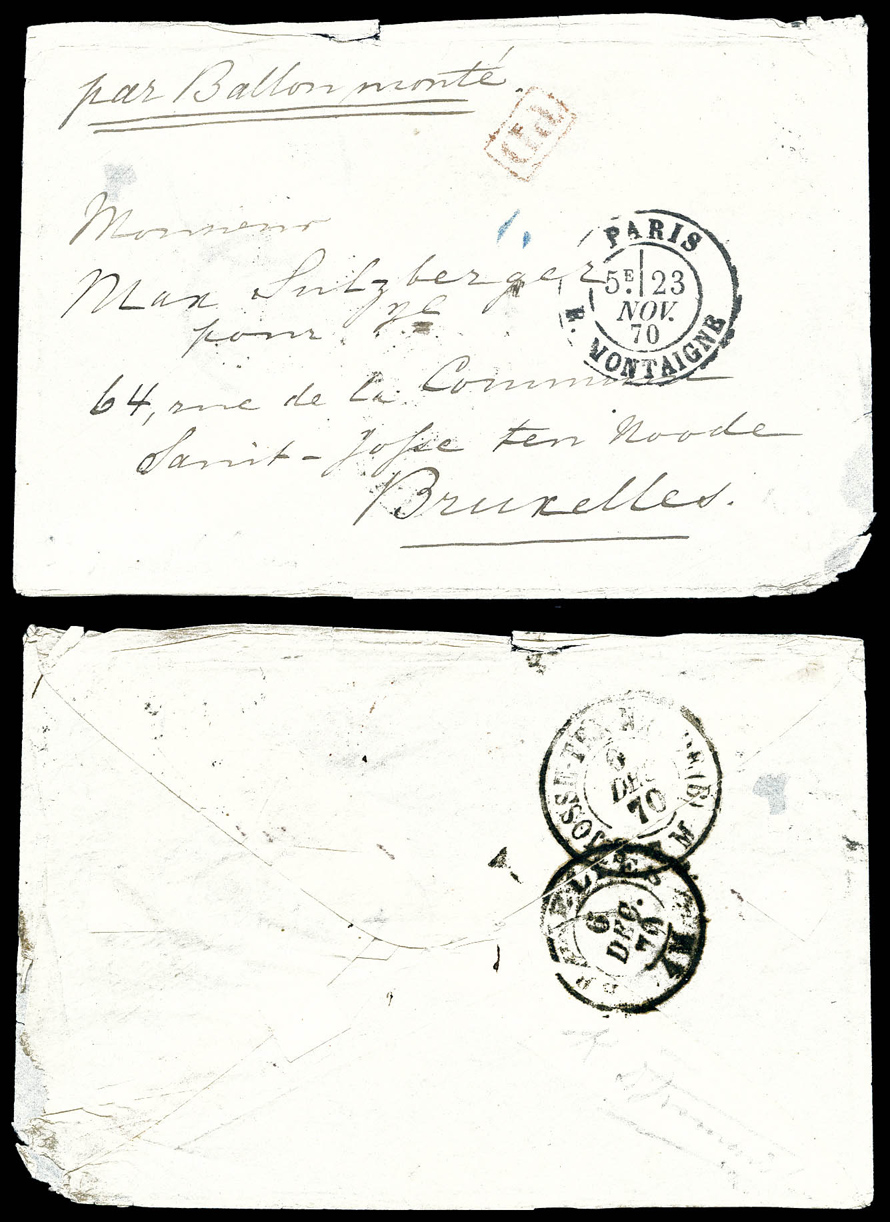 par Ballon monté.
PD
Monsieur
Max Sulzberger
pour
64, rue de la Commune
Saint-Josse ten Noode
Bruxelles.
PARIS
5E 23
NOV.
70
R. MONTAIGNE
JOSSE-TEN
6
DEC
70
BRUXELLES
6
DEC.
70